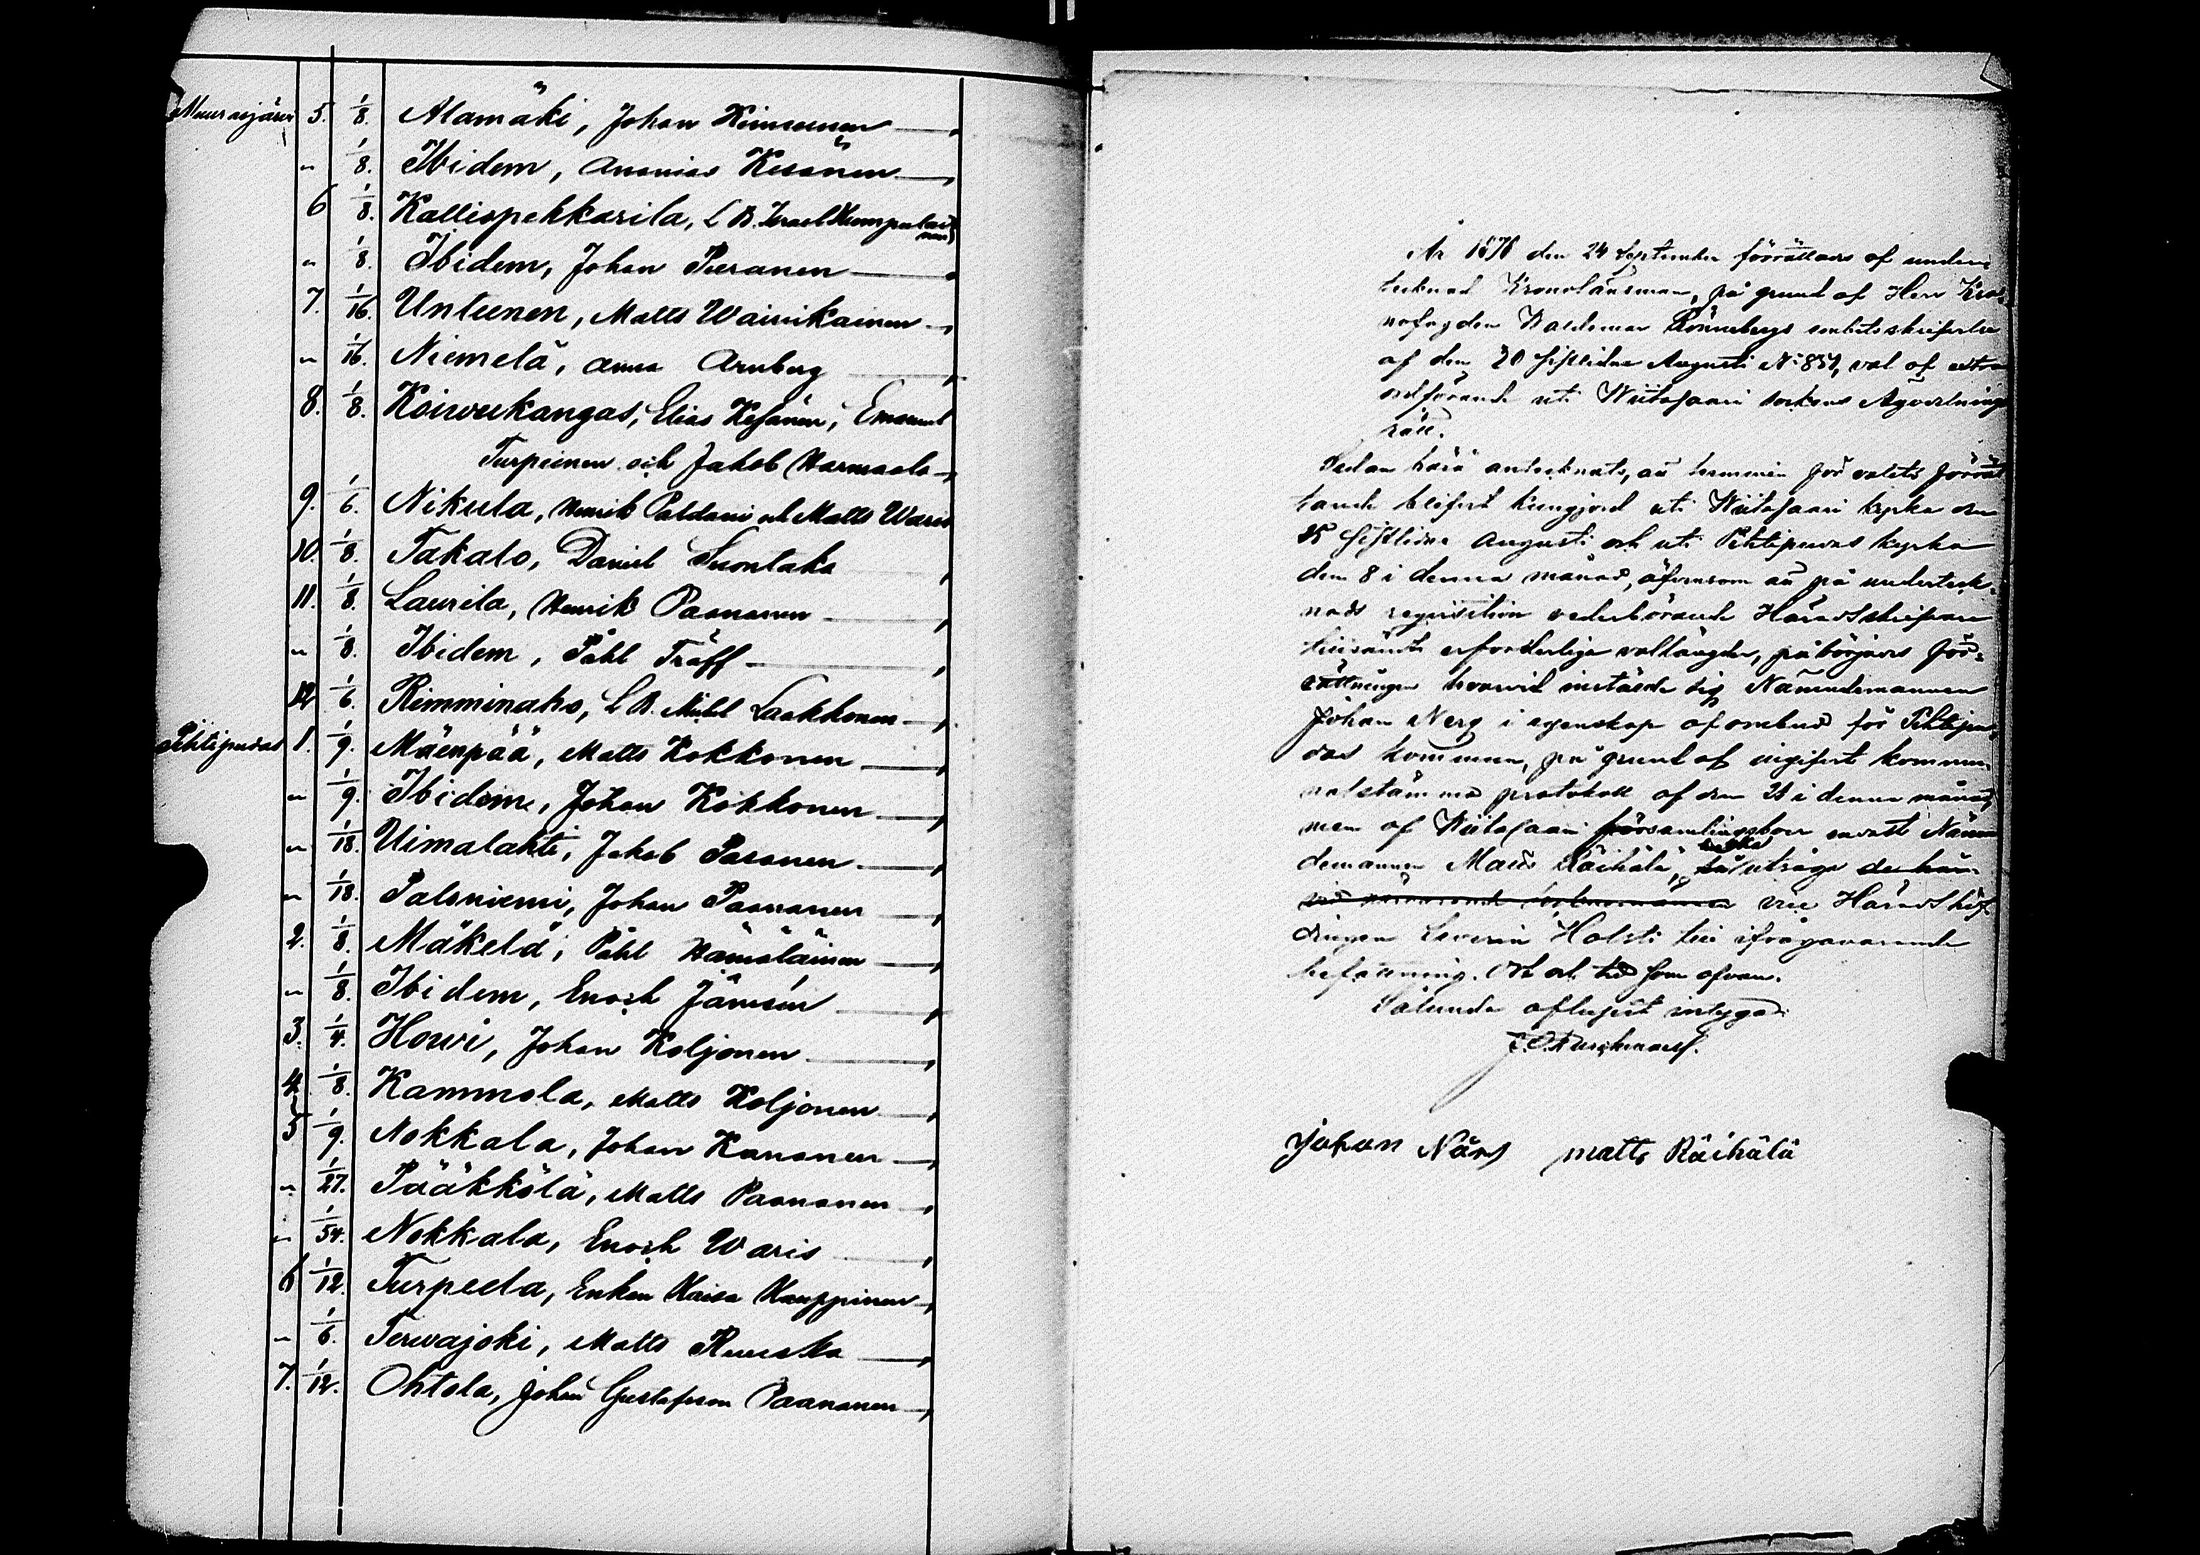 Muurasjärvi 5. 1/8. Alamäki, Johan Kinnunen
" 1/8. Ibidem, Ananias Kesänen
6 1/8. Kalliopekkarila, L B. Israel Kumpulai
nen
" 1/8. Ibidem, Johan Puranen
7. 1/16. Untunen, Matts Wainikainen
" 1/16. Niemelä, Anna Arnberg
8. 1/8. Koiwukangas, Elias Kesänen, Emanuel
Turpeinen och Jakob Harmaala
9. 1/6. Nikula, Henrik Paldani och Matts Waris
10. 1/8. Takalo, Daniel Suontaka
11. 1/8. Laurila, Henrik Paananen
" 1/8. Ibidem, Påhl Träff
12 1/6. Rimminaho, L B. Mikel Laakkonen
Pihtipudas 1. 1/9. Mäenpää, Matts Kokkonen
" 1/9. Ibidem, Johan Kokkonen
" 1/18. Uimalahti, Jakob Pasanen
" 1/18. Saloniemi, Johan Paananen
2. 1/8. Mäkelä, Påhl Hämäläinen
" 1/8. Ibidem, Enoch Jämsén
3. 1/4. Howi, Johan Koljonen
4. 1/8. Kammola, Matts Koljonen
5 1/9. Nokkala, Johan Kananen
" 1/27. Pääkkölä, Matts Paananen
" 1/54. Nokkala, Enoch Waris
6 1/12. Turpela, Enkan Kaisa Kauppinen
" 1/6. Terwajoki, Matts Ruuska
7. 1/12. Ohtola, Johan Gustafsson Paananen
År 1878 den 24 September förrättades af under-
tecknad Kronolänsman, på grund af Herr Kro-
nofogden Waldemar Rönnebergs embetsskrifvelse
af den 20 sistlidne Augusti No 851, val af extra
ordförande uti Wiitasaari sockens Ägodelnings
rätt.
Sedan härå antecknats, att terminen för valets förrät
tande blifvit kungjord uti Wiitasaari kyrka den
25 sistlidne Augusti och uti Pihtipudas kyrka
den 8 i denna månad, äfvensom att på underteck-
nads requisition vederbörande Häradsskrifvare
tillsändt erforderliga vallängder, påbörjades för-
rättningen hvarvid inställde sig Nämndemannen
Johan Nerg i egenskap af ombud för Pihtipu-
das kommun, på grund af ingifvet kommu-
nalstämmo protokoll af den 21 i denna månad,
men af Wiitasaari församlingsboer endast Nämn
demannen Matts Räihälä, uppdroge
vice Häradshöf
dingen Severin Holsti till ifrågavarande
befattning. Ort och tid som ofvan.
Sålunda aflupet intygar:
Johan Närj matts Räihälä